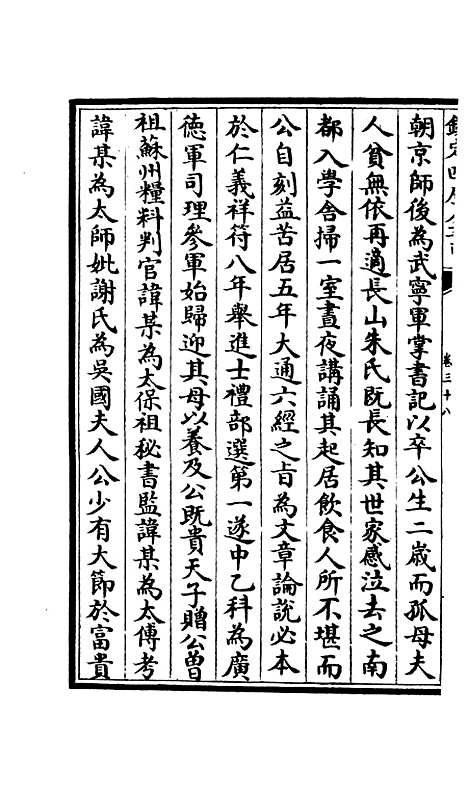 卷三十八
朝京師後為武寧軍掌書記以卒公生二歲而孤母夫
人貧無依再適長山朱氏既長知其世家感泣去之南
都入學舍掃一室晝夜講誦其起居飲食人所不堪而
公自刻益苦居五年大通六經之旨為文章論說必本
於仁義祥符八年舉進士禮部選第一遂中乙科為廣
德軍司理參軍始歸迎其母以養及公既貴天子贈公曽
祖蘇州糧料判官諱某為太保祖秘書監諱某為太傅考
諱某為太師妣謝氏為吳國夫人公少有大節於富貴